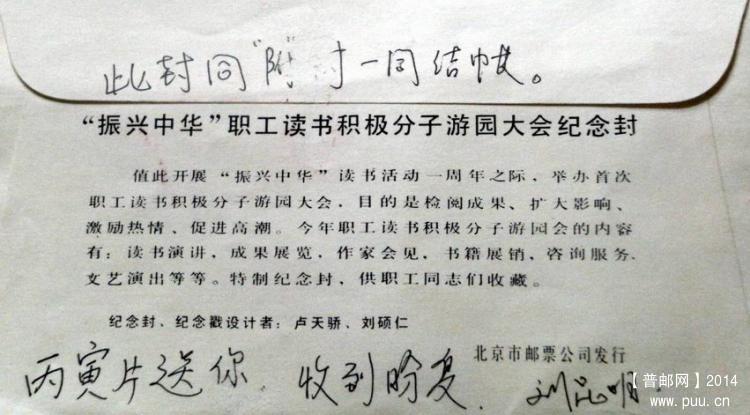 此封同“附”寸一同结帐。
“振兴中华”职工读书积极分子游园大会纪念封
值此开展“振兴中华”读书活动一周年之际，举办首次
职工读书积极分子游园大会，目的是检阅成果、扩大影响、
激励热情、促进高潮。今年职工读书积极分子游园会的内容
有：读书演讲，成果展览，作家会见，书籍展销、咨询服务、
文艺演出等等。特制纪念封，供职工同志们收藏。
纪念封、纪念戳设计者：卢天骄、刘硕仁
北京市邮票公司发行
丙寅片送你，收到盼复．
【普邮网】2014
www.puu.cn